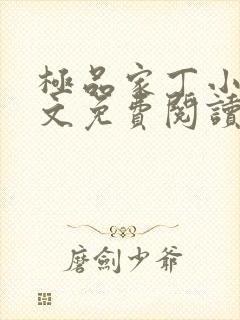 極品家丁小
文免費閱讀
磨劍少爺